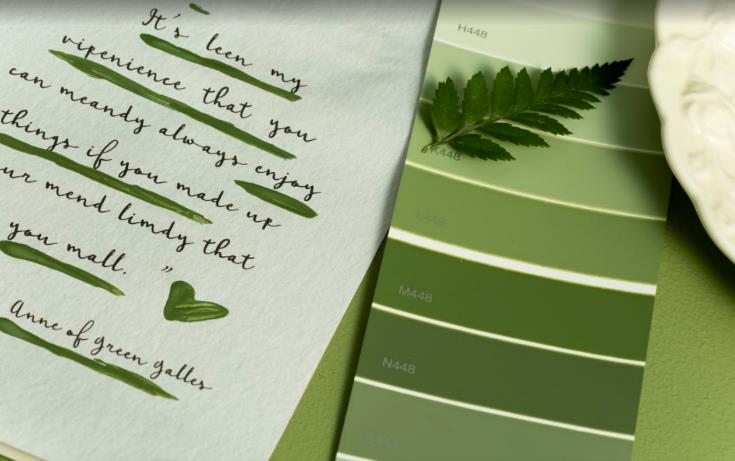 It's leen my
vipenience that you
can meandy always enjoy
things if you made up
ur mend limdy that
you mall. "
Anne of green galles
H448
K448
L448
M448
N448